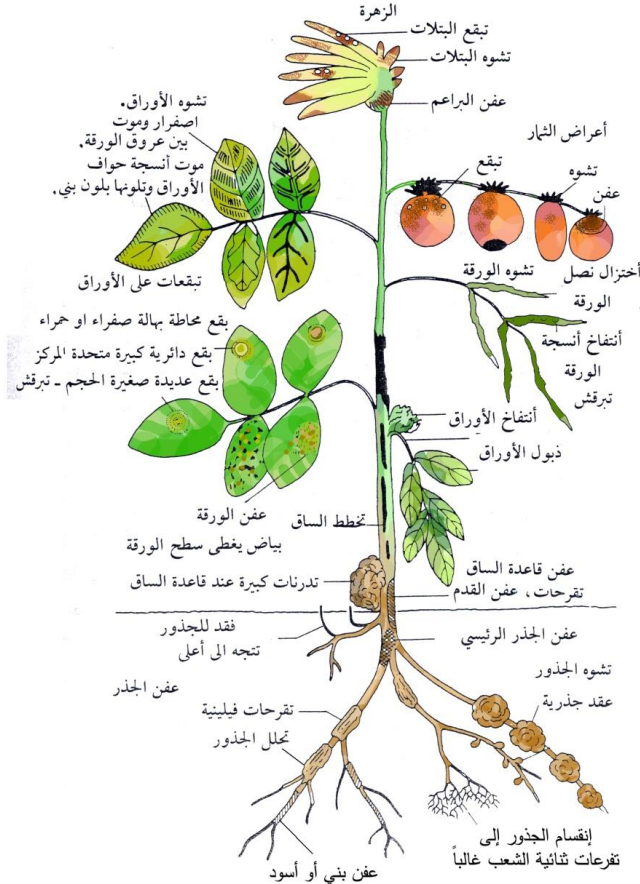 الزهرة
تبقع البتلات
تشوه البتلات
عفن البراعم
تشوه الأوراق.
اصفرار وموت
بين عروق الورقة.
موت أنسجة حواف
الأوراق وتلونها بلون بني.
تبقعات على الأوراق
أعراض الثمار
تبقع
تشوه
عفن
أختزال نصل
الورقة
تشوه الورقة
أنتفاخ أنسجة
الورقة
تبرقش
بقع محاطة بهالة صفراء او حمراء
بقع دائرية كبيرة متحدة المركز
بقع عديدة صغيرة الحجم ـ تبرقش
أنتفاخ الأوراق
ذبول الأوراق
عفن الورقة
بياض يغطى سطح الورقة
تخطط الساق
تدرنات كبيرة عند قاعدة الساق
عفن قاعدة الساق
تقرحات، عفن القدم
فقد للجذور
تتجه الى أعلى
عفن الجذر الرئيسي
تشوه الجذور
عقد جذرية
عفن الجذر
تقرحات فيلينية
تحلل الجذور
إنقسام الجذور إلى
تفرعات ثنائية الشعب غالباً
عفن بني أو أسود